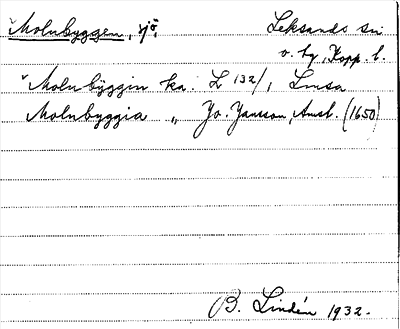 Molnbyggen, sjö, Leksands sn
o. by, Kopp. l.
Molnbÿggin ka. L 132/1 Lmsa
Molnbÿggia „ Jo. Jansson, Amst. (1650)
B. Lindén 1932.